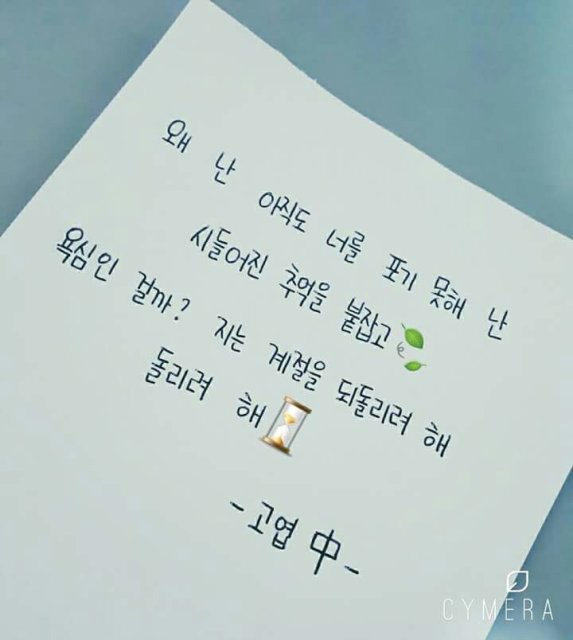 왜 난 아직도 너를 포기 못해 난
시들어진 추억을 붙잡고🍃
욕심인 걸까? 지는 계절을 되돌리려 해
돌리려 해⏳
-고엽 中-
CYMERA